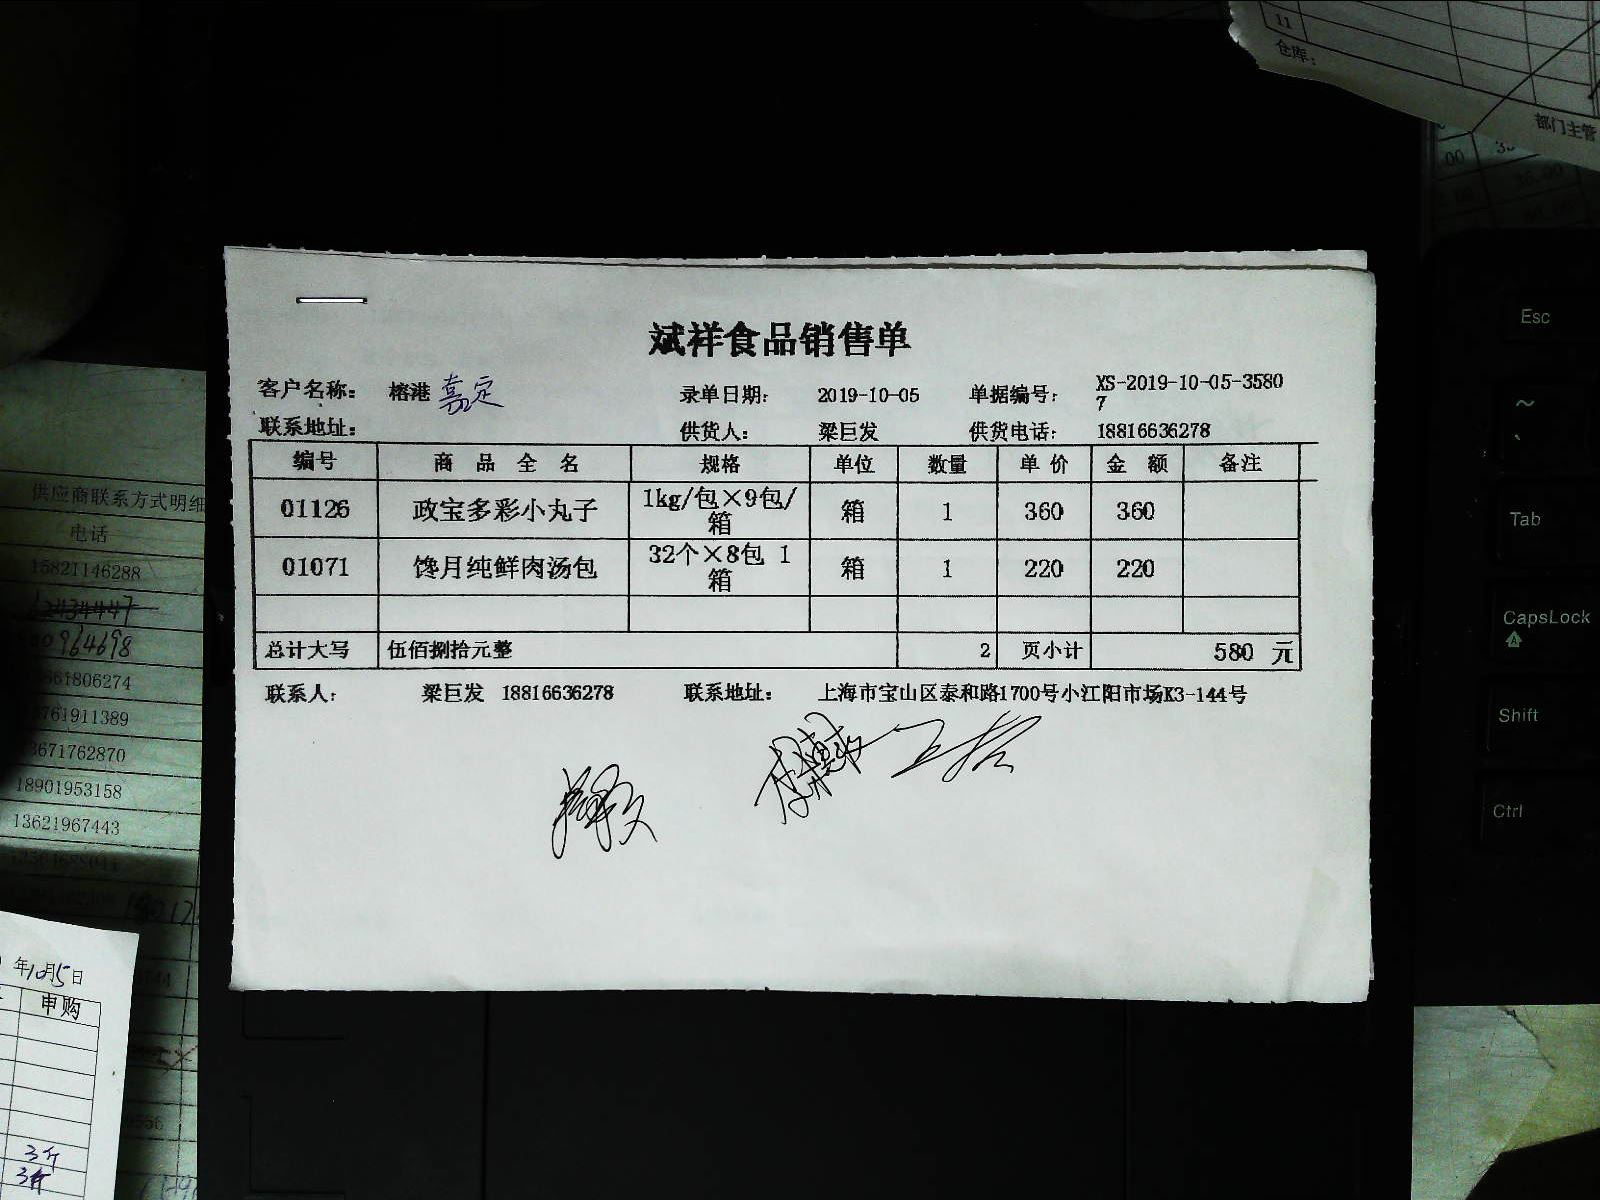 斌祥食品销售单
客户名称： 榕港 嘉定 录单日期： 2019-10-05 单据编号： XS-2019-10-05-3580
7
联系地址： 供货人： 梁巨发 供货电话： 18816636278
编号 商 品 全 名 规格 单位 数量 单 价 金 额 备注
01126 政宝多彩小丸子 1kg/包×9包/ 箱 1 360 360
箱
01071 馋月纯鲜肉汤包 32个×8包 1 箱 1 220 220
箱
总计大写 伍佰捌拾元整 2 页小计 580 元
联系人： 梁巨发 18816636278 联系地址： 上海市宝山区泰和路1700号小江阳市场K3-144号
11
仓库：
部门主管
.00
36.00
Esc
~
Tab
CapsLock
A
Shift
Ctrl
供应商联系方式明细
电话
15821146288
62434447
964698
661806274
761911389
3671762870
18901953158
13621967443
年10月5日
申购
3斤
3斤